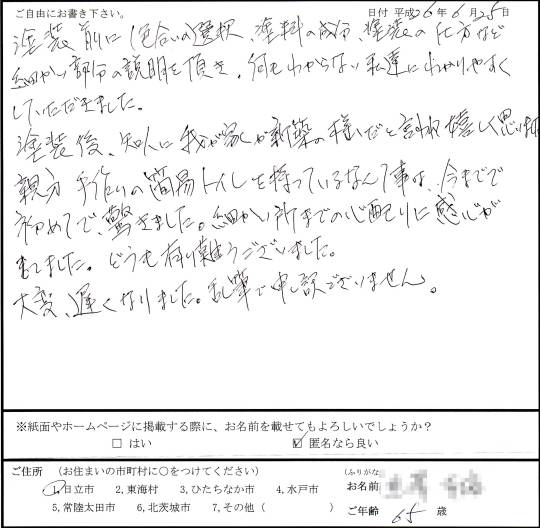 ご自由にお書き下さい。 日付 平成26年6月25日
塗装前に(色合いの)選択、塗料の成分、塗装の仕方など
細かい部分の説明を頂き、何もわからない私達にわかりやすく
していただきました。
塗装後、知人に我が家が新築の様だと言われ嬉しく思い
親方手作りの簡易トイレを持っているなんて事は、今までで
初めてで驚きました。細かい所までの心配りに感心が
ました。どうも有り難うございました。
大変、遅くなりました。乱筆で申し訳ございません。
※紙面やホームページに掲載する際に、お名前を載せてもよろしいでしょうか?
□ はい ☑ 匿名なら良い
ご住所 (お住まいの市町村に○をつけてください) (ふりがな)
1,日立市 2,東海村 3,ひたちなか市 4,水戸市 お名前
5,常陸太田市 6,北茨城市 7,その他( ) ご年齢 65 歳